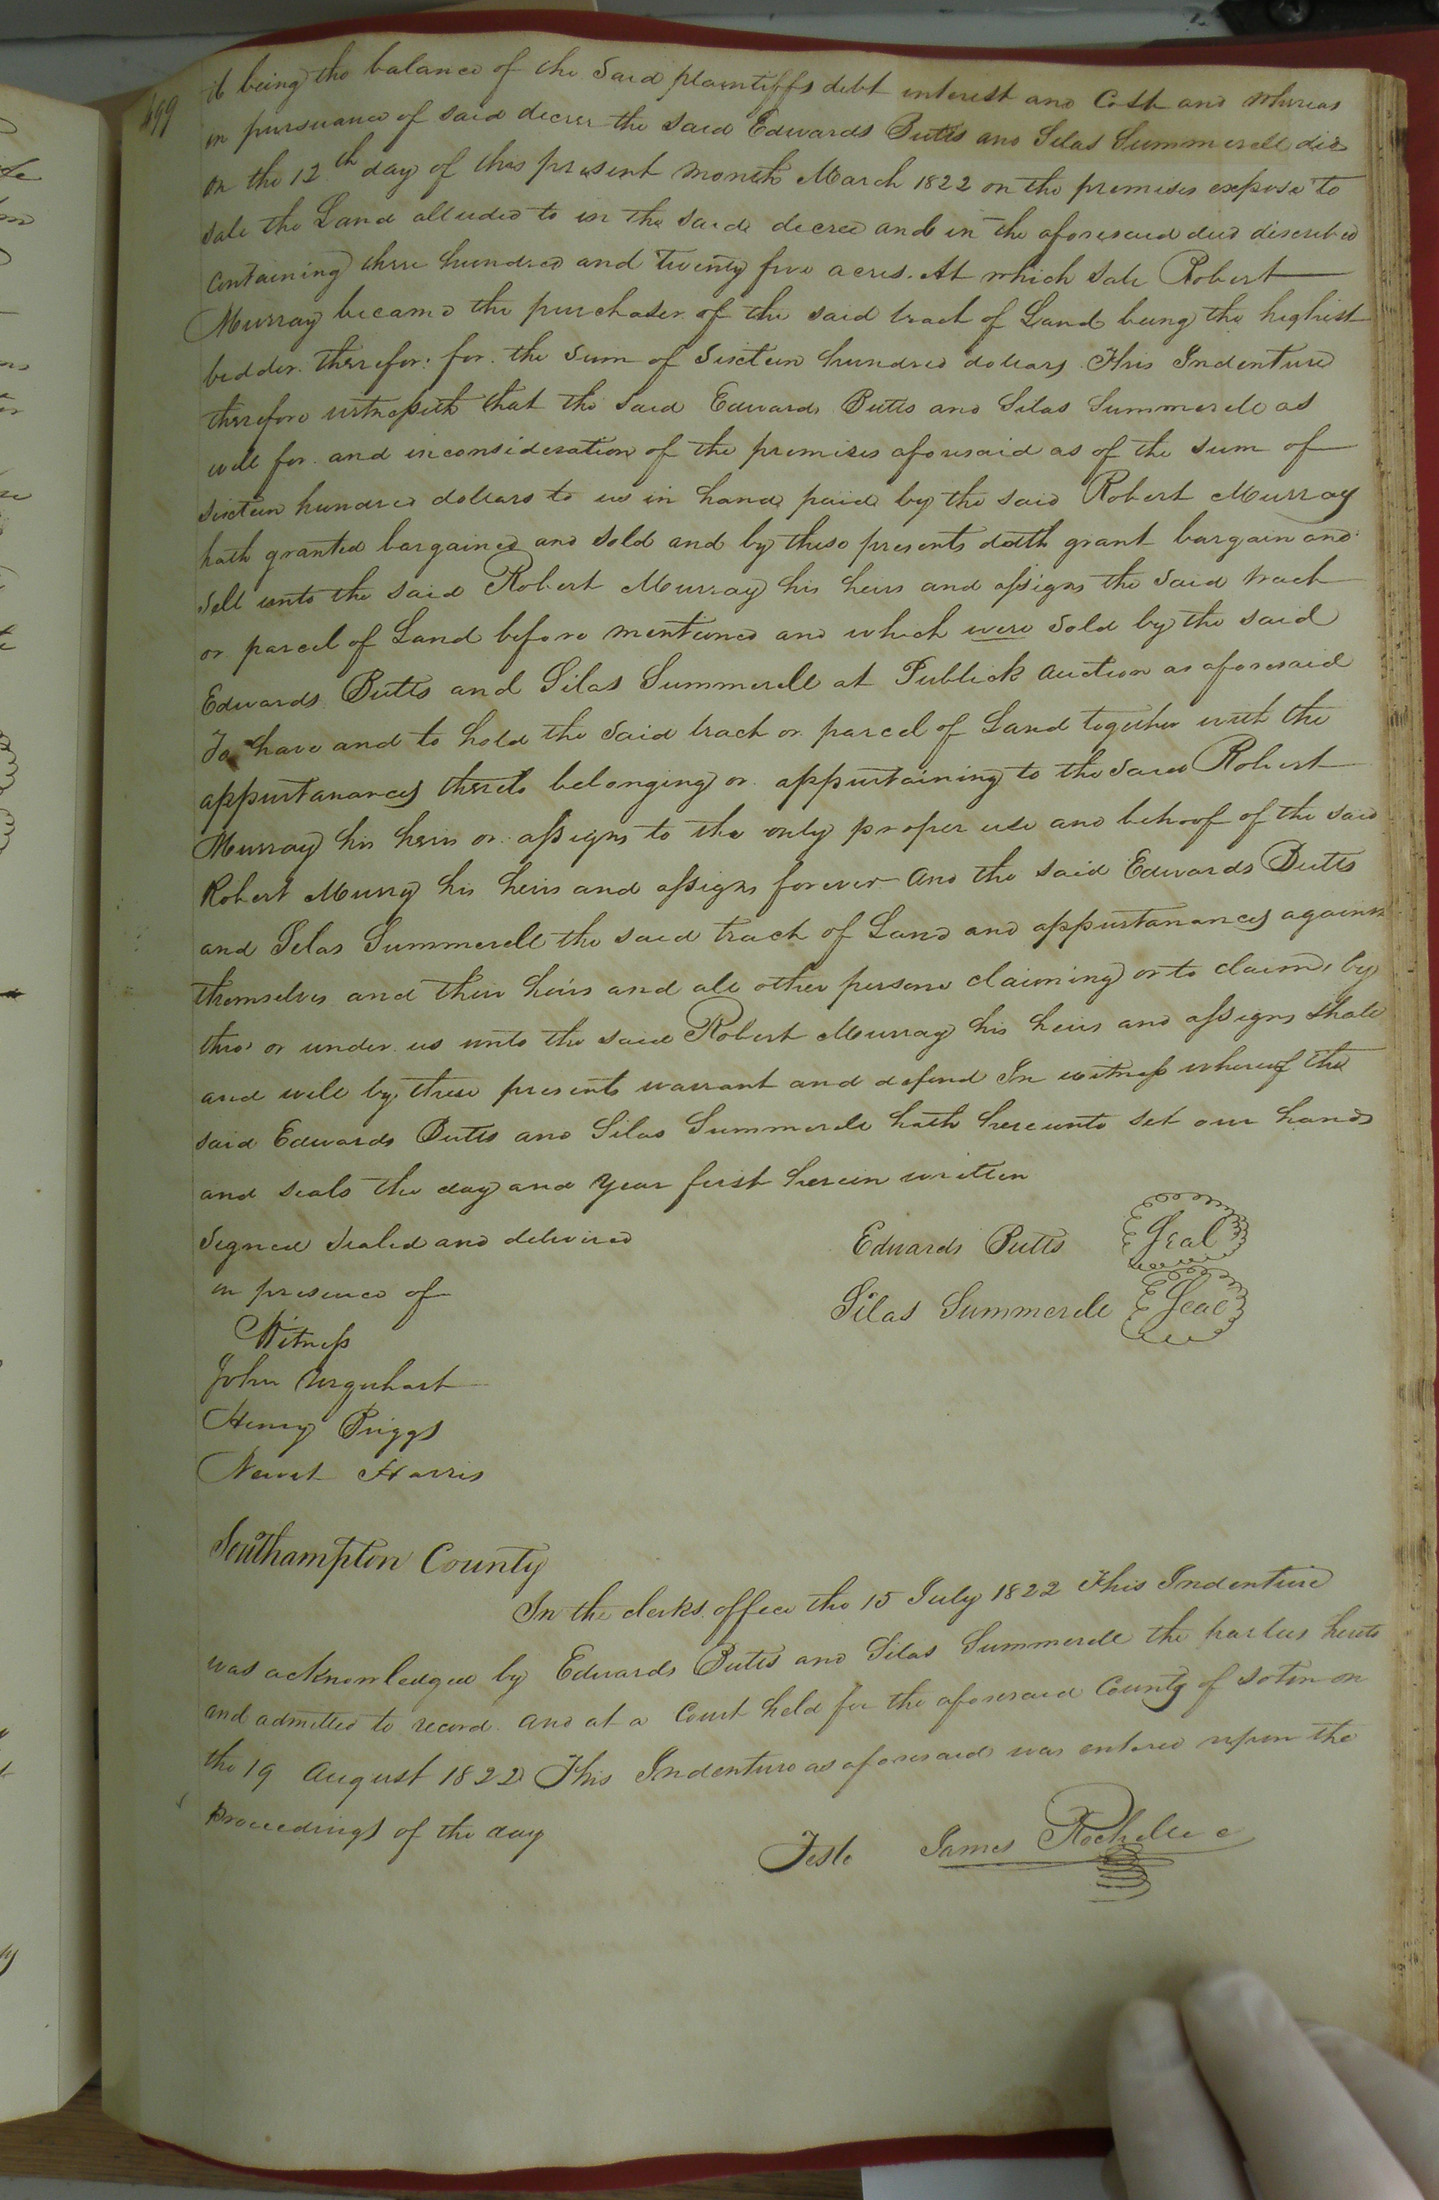 499
it being the balance of the said plaintiffs debt interest and Cost and whereas
in pursuance of said decree the said Edwards Butts and Silas Summerell did
on the 12th day of this present month March 1822 on the premises expose to
sale the Land alluded to in the said decree and in the aforesaid deed discribed
Containing three hundred and twenty five acres. At which sale Robert
Murray became the purchaser of the said tract of Land being the highest
bedder therefor: for the sum of Sixteen hundred dollars This Indenture
therefore witnesseth that the said Edwards Butts and Silas Summerell as
well for and in consideration of the premises aforesaid as of the sum of
sixteen hundred dollars to us in hand paid by the said Robert Murray
hath granted bargained and sold and by these presents doth grant bargain and
sell unto the said Robert Murray his heirs and assigns the said tract
or parcel of Land before mentioned and which were sold by the said
Edwards Butts and Silas Summerell at Publick auction as aforesaid
To have and to hold the said tract or parcel of Land together with the
appurtanances thereto belonging or appurtaining to the said Robert
Murray his heirs or assigns to the only proper use and behoof of the said
Robert Murry his heirs and assigns forever and the said Edwards Butts
and Silas Summerell the said tract of Land and appurtanances against
themselves and their heirs and all other persons claiming or to claim, by
thro' or under us unto the said Robert Murray his heirs and assigns shall
and will by these presents warrant and defend In witness whereof the
said Edwards Butts and Silas Summerell hath hereunto set our hands
and seals the day and year first herein written
Signed sealed and delivered
in presence of
Edwards Butts Seal
Silas Summerell Seal
Witness
John Urquhart
Henry Briggs
Newit Harris
Southampton County
In the clerks office the 15 July 1822 This Indenture
was acknowledged by Edwards Butts and Silas Summerell the parties hereto
and admitted to record and at a Court held for the aforesaid County of Soton on
the 19 August 1822 This Indenture as aforesaid was entered upon the
Proceedings of the day
Teste James Rochelle c